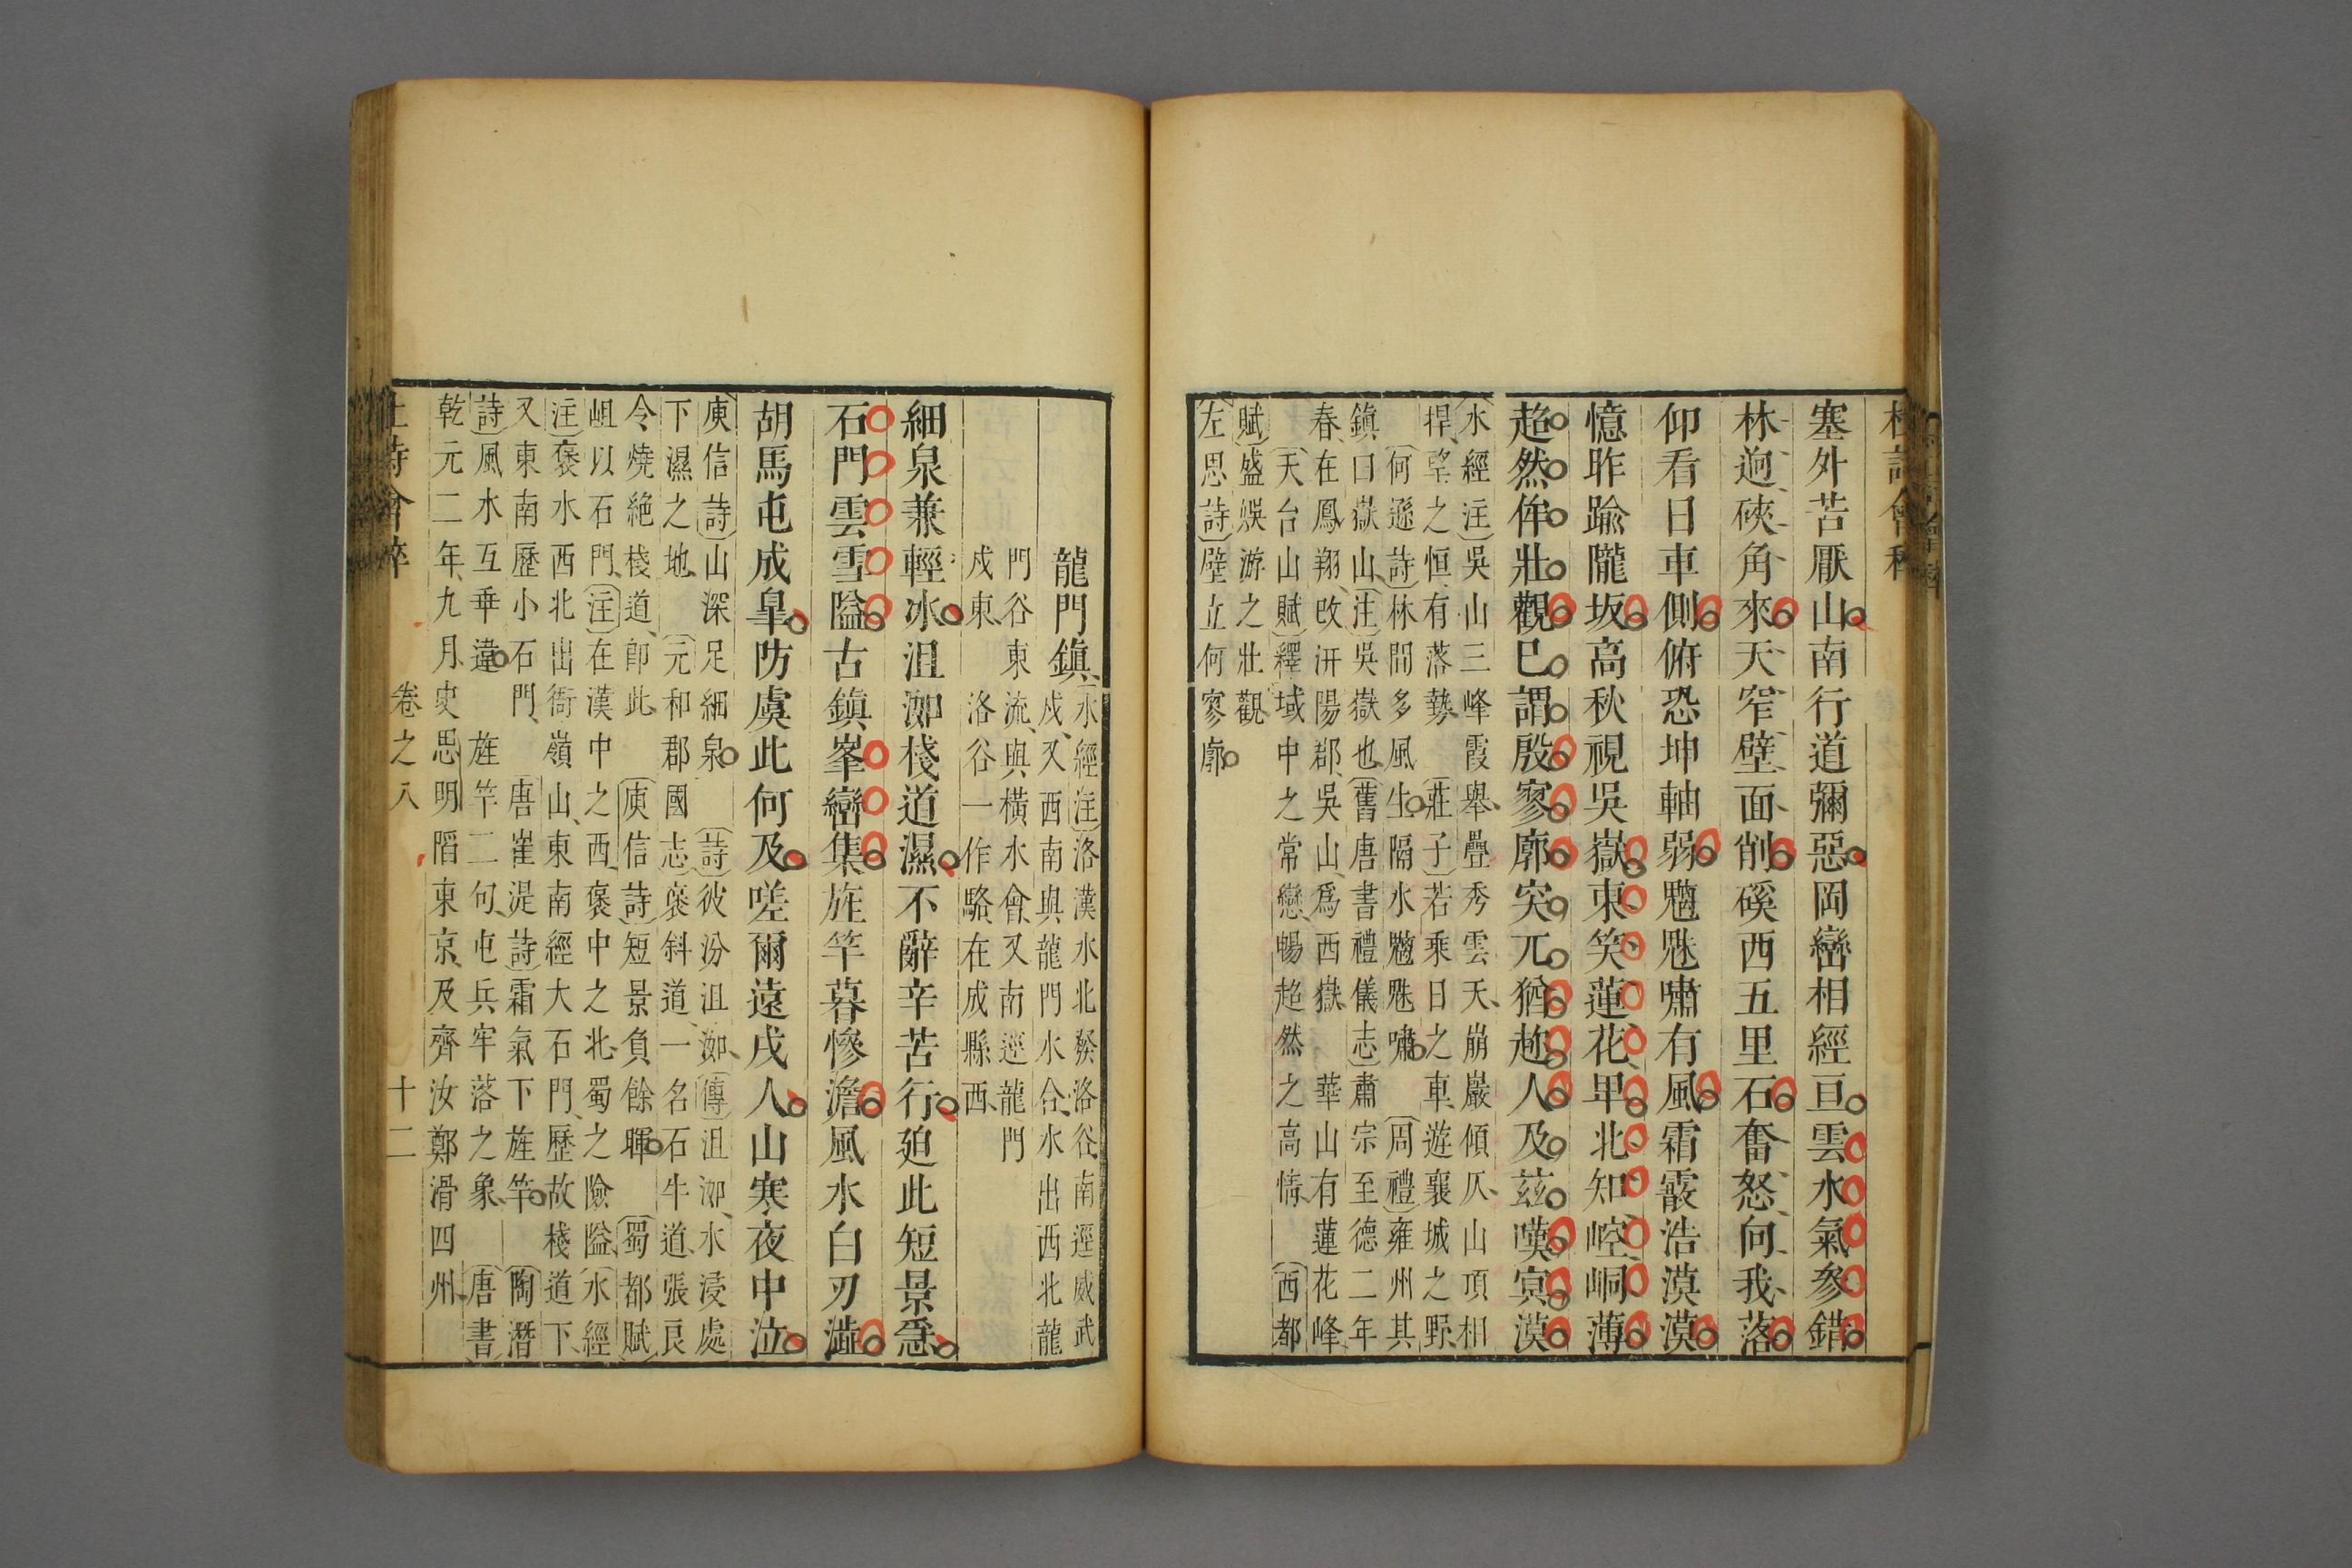 杜詩會稡
塞外苦厭山南行道彌惡岡巒相經亘雲水氣參錯
林迥硤角來天窄壁面削磎西五里石奮怒向我落
仰看日車側俯恐坤軸弱魑魅嘯有風霜霰浩漠漠
憶昨踰隴坂高秋視吳嶽東笑蓮花卑北知崆峒薄
超然侔壯觀已謂殷寥廓突兀猶趂人及茲嘆冥漠
〔水經注〕吳山三峰霞舉疊秀雲天、崩巖傾仄、山頂相
捍、望之恒有落勢、〔莊子〕若乘日之車、遊襄城之野、
〔何遜詩〕林間多風生。隔水魑魅嘯。〔周禮〕雍州其
鎮曰嶽山、〔注〕吳嶽也〔舊唐書禮儀志〕肅宗至德二年
春、在鳳翔改汧陽郡、吳山、爲西嶽、 華山有蓮花峰、
〔天台山賦〕釋域中之常戀、暢超然之高情、〔西都
賦〕盛娛游之壯觀、
〔左思詩〕壁立何寥廓。
龍門鎮
〔水經注〕洛漢水北發洛谷、南逕威武
戍、又西南與龍門水合、水出西北龍
門谷東流、與橫水會、又南逕龍門
戍東、 洛谷一作駱、在成縣西、
細泉兼輕冰沮洳棧道濕不辭辛苦行迫此短景急
石門雲雪隘古鎮峯巒集旌竿暮慘澹風水白刃澁
胡馬屯成皐防虞此何及嗟爾遠戍人山寒夜中泣
〔庾信詩〕山深足細泉。 〔詩〕彼汾沮洳、〔傳〕沮洳、水浸處
下濕之地、〔元和郡國志〕褒斜道、一名石牛道、張良
令燒絕棧道、卽此、 〔庾信詩〕短景負餘暉。 〔蜀都賦〕
岨以石門、〔注〕在漢中之西、褒中之北、蜀之險隘、〔水經
注〕褒水西北出衙嶺山、東南經大石門、歷故棧道下
又東南歷小石門、 唐崔湜詩〕霜氣下旌竿。 〔陶潛
詩〕風水互乖違。 旌竿二句、屯兵牢落之象、 〔唐書〕
乾元二年、九月、史思明陷東京、及齊汝鄭滑四州、
杜詩會稡 卷之八 十二